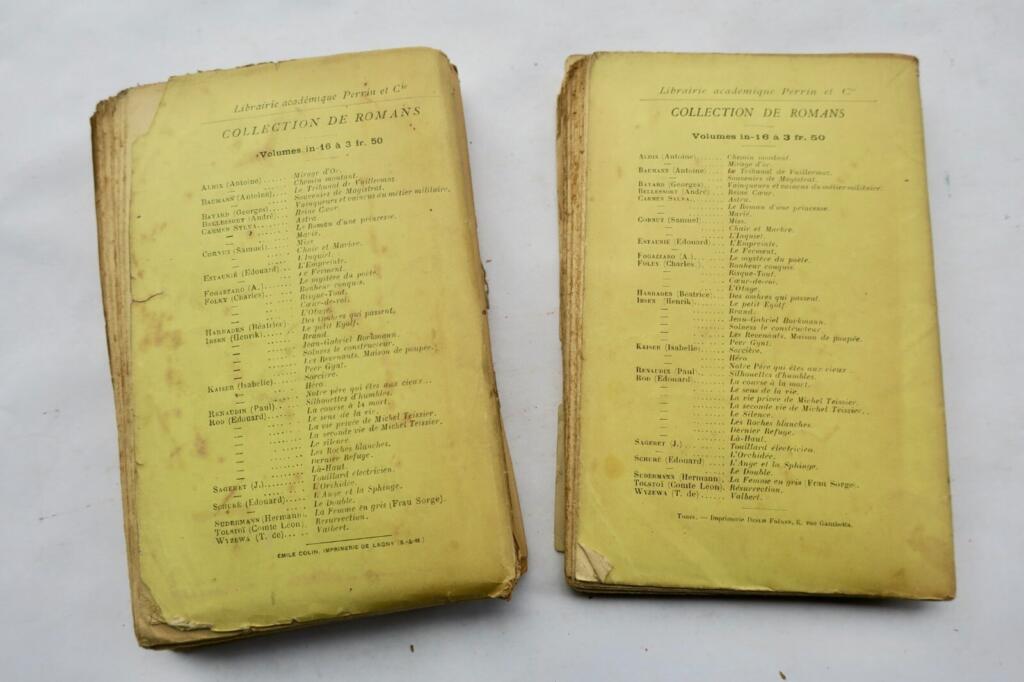 Librairie académique Perrin et Cie
COLLECTION DE ROMANS
Volumes in-16 à 3 fr. 50
ALBIX (Antoine)..... Mirage d'Or.
— Chemin montant.
BAUMANN (Antoine)... Le Tribunal de Vuillermoz.
— Souvenirs de Magistrat.
BAYARD (Georges)..... Vainqueurs et vaincus du métier militaire.
BELLESSORT (André)... Reine Cœur.
CARMEN SYLVA........ Astra.
— Le Roman d'une princesse.
— Marié.
CORNUT (Samuel)..... Miss.
— Chair et Marbre.
— L'Inquiet.
ESTAUNIÉ (Edouard)... L'Empreinte.
— Le Ferment.
FOGAZZARO (A.)....... Le mystère du poète.
FOLEY (Charles)...... Bonheur conquis.
— Risque-Tout.
— Cœur-de-roi.
— L'Otage.
HARRADEN (Béatrice).. Des ombres qui passent.
IBSEN (Henrik)....... Le petit Eyolf.
— Brand.
— Jean-Gabriel Borkmann.
— Solness le constructeur.
— Les Revenants. Maison de poupée.
— Peer Gynt.
KAISER (Isabelle).... Sorcière.
— Héro.
— Notre père qui êtes aux cieux...
RENAUDIN (Paul)...... Silhouettes d'humbles.
ROD (Edouard)........ La course à la mort.
— Le sens de la vie.
— La vie privée de Michel Teissier.
— La seconde vie de Michel Teissier.
— Le silence.
— Les Roches blanches.
— Dernier Refuge.
— Là-Haut.
SAGERET (J.)......... Touillard électricien.
— L'Orchidée.
SCHURÉ (Edouard)..... L'Ange et la Sphinge.
— Le Double.
SUDERMANN (Hermann). La Femme en gris (Frau Sorge).
TOLSTOÏ (Comte Léon). Résurrection.
WYZEWA (T. de)....... Valbert.
ÉMILE COLIN, IMPRIMERIE DE LAGNY (S.-&-M.)
Librairie académique Perrin et Cie
COLLECTION DE ROMANS
Volumes in-16 à 3 fr. 50
ALBIX (Antoine)....... Chemin montant.
— Mirage d'Or.
BAUMANN (Antoine)..... Le Tribunal de Vuillermoz.
— Souvenirs de Magistrat.
BAYARD (Georges)...... Vainqueurs et vaincus du métier militaire.
BELLESSORT (André).... Reine Cœur.
CARMEN SYLVA......... Astra.
— Le Roman d'une princesse.
— Marié.
CORNUT (Samuel)...... Miss.
— Chair et Marbre.
— L'Inquiet.
ESTAUNIÉ (Edouard)... L'Empreinte.
— Le Ferment.
FOGAZZARO (A.)........ Le mystère du poète.
FOLEY (Charles)....... Bonheur conquis.
— Risque-Tout.
— Cœur-de-roi.
— L'Otage.
HARRADEN (Béatrice)... Des ombres qui passent.
IBSEN (Henrik)........ Le petit Eyolf.
— Brand.
— Jean-Gabriel Borkmann.
— Solness le constructeur.
— Les Revenants. Maison de poupée.
— Peer Gynt.
KAISER (Isabelle)..... Sorcière.
— Héro.
— Notre Père qui êtes aux cieux...
RENAUDIN (Paul)....... Silhouettes d'humbles.
ROD (Edouard)......... La course à la mort.
— Le sens de la vie.
— La vie privée de Michel Teissier.
— La seconde vie de Michel Teissier.
— Le Silence.
— Les Roches blanches.
— Dernier Refuge.
— Là-Haut.
SAGERET (J.).......... Touillard électricien.
— L'Orchidée.
SCHURÉ (Edouard)...... L'Ange et la Sphinge.
— Le Double.
SUDERMANN (Hermann).. La Femme en gris (Frau Sorge).
TOLSTOÏ (Comte Léon).. Résurrection.
WYZEWA (T. de)........ Valbert.
TOURS. — Imprimerie DESLIS FRÈRES, 6, rue Gambetta.